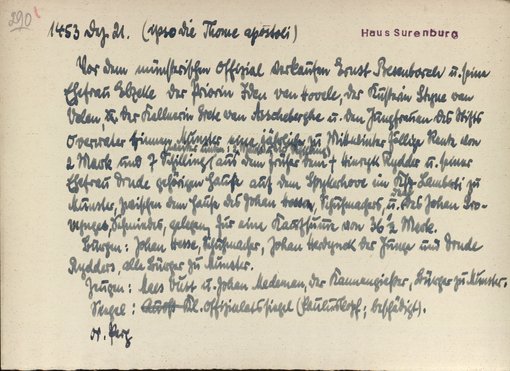 290
1453 Dez. 21. (ipso die Thome apostoli) Haus Surenburg
Vor dem münsterischen Offizial verkaufen Ernst u. seine
Ehefrau der Priorin Iden van Hovele, der Küsterin van
Velen, der Kellnerin van Asscheberghe u. den Jungfrauen des Stifts
Overwater binnen Münster eine jährliche zu Mittwinter fällige Rente von
2 Mark und 7 Schilling aus dem früher dem † Hinryk Rydder u. seiner
Ehefrau Drude gehörigen Hause auf dem im Kspl. Lamberti zu
Münster, zwischen dem Hause des Johan Schuhmachers, u. des Johan
Schmiedes, gelegen für eine Kaufsumme von 36½ Mark.
Bürgen: Johan Schuhmacher, Johan der Junge und Drude
Rydders, alle Bürger zu Münster.
Zeugen: u. Johan der Kannengießer, Bürger zu Münster.
Siegel: Offizialatssiegel (Pauluskopf; beschädigt).
Or. Perg.